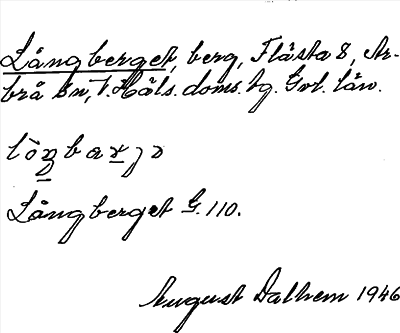 Långberget, berg, Flästa 8, Ar-
brå sn, V. Häls. doms. tg. Gvl. län.
Långberget G. 110.
August Dalhem 1946